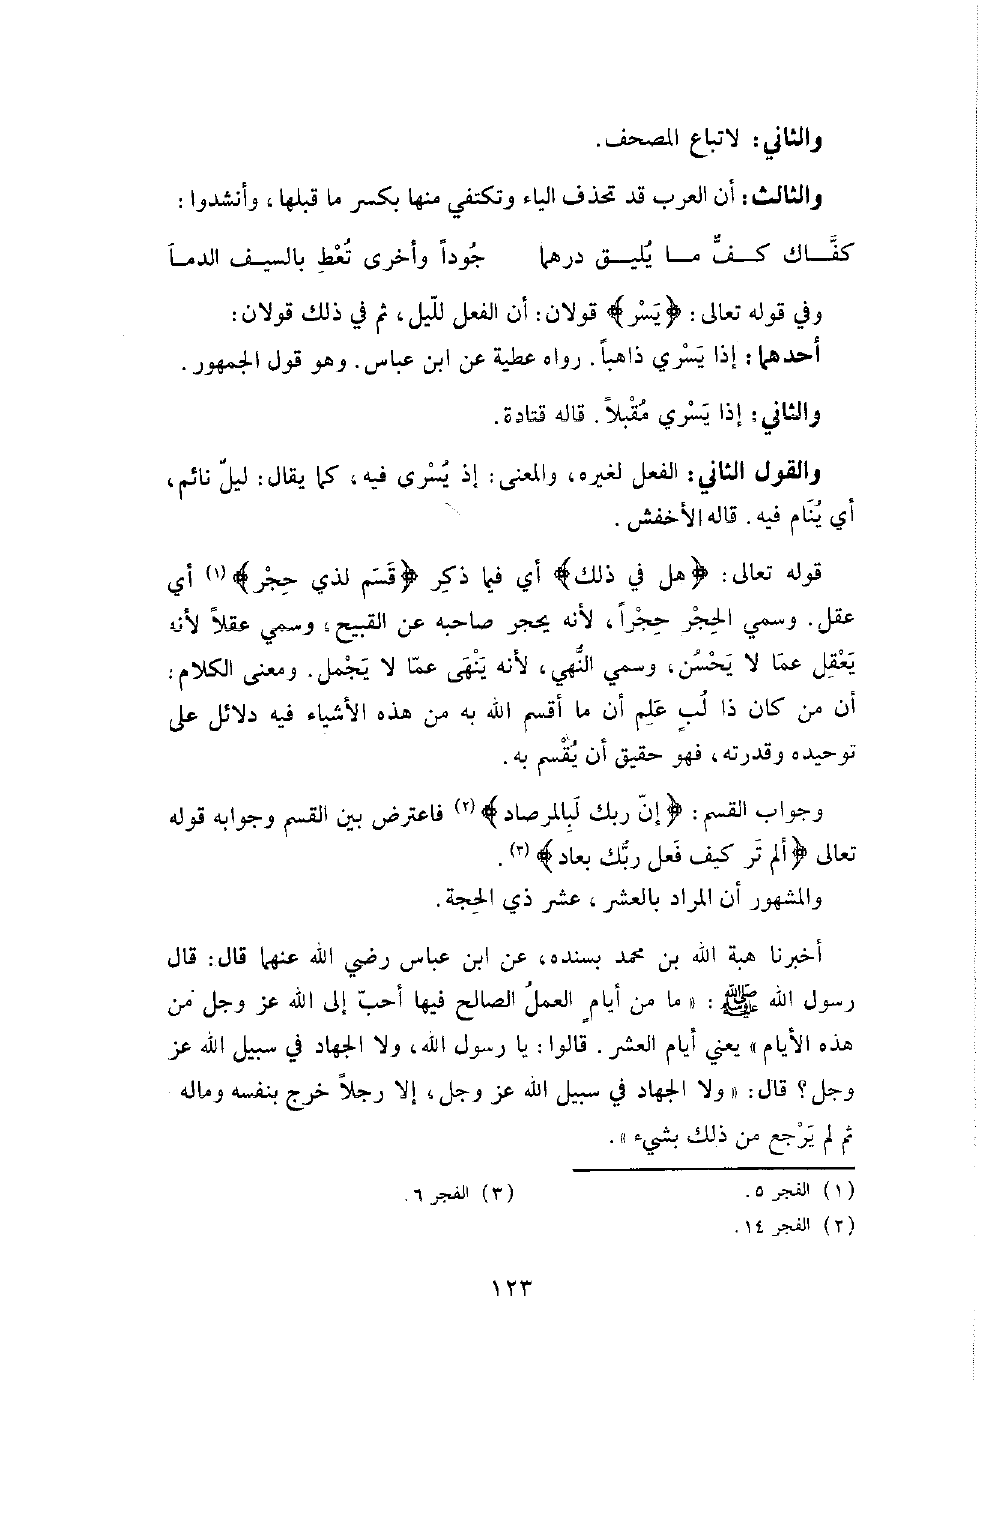 والثاني: لاتباع المصحف.
والثالث: أن العرب قد تحذف الياء وتكتفي منها بكسر ما قبلها، وأنشدوا:
كفَّاك كفٌّ ما يُليق درهما جُوداً وأخرى تُعْطِ بالسيف الدما
وفي قوله تعالى: ﴿يَسْرِ﴾ قولان: أن الفعل للّيل، ثم في ذلك قولان:
أحدهما: إذا يَسْري ذاهباً. رواه عطية عن ابن عباس. وهو قول الجمهور.
والثاني: إذا يَسْري مُقْبلاً. قاله قتادة.
والقول الثاني: الفعل لغيره، والمعنى: إذ يُسْرى فيه، كما يقال: ليلٌ نائم،
أي يُنَام فيه. قاله الأخفش.
قوله تعالى: ﴿هل في ذلك﴾ أي فيما ذكِر ﴿قَسَم لذي حِجْر﴾ (١) أي
عقل. وسمي الحِجْر حِجْراً، لأنه يحجر صاحبه عن القبيح، وسمي عقلاً لأنه
يَعْقِل عمّا لا يَحْسُن، وسمي النُّهي، لأنه يَنْهَى عمّا لا يَجْمل. ومعنى الكلام:
أن من كان ذا لُبٍ عَلِم أن ما أقسم الله به من هذه الأشياء فيه دلائل على
توحيده وقدرته، فهو حقيق أن يُقْسم به.
وجواب القسم: ﴿إنّ ربك لَبِالمرصاد﴾ (٢) فاعترض بين القسم وجوابه قوله
تعالى ﴿ألم تَر كيف فَعل ربُّك بعاد﴾ (٣).
والمشهور أن المراد بالعشر، عشر ذي الحِجة.
أخبرنا هبة الله بن محمد بسنده، عن ابن عباس رضي الله عنهما قال: قال
رسول الله ﷺ: «ما من أيامٍ العملُ الصالح فيها أحبّ إلى الله عز وجل من
هذه الأيام» يعني أيام العشر. قالوا: يا رسول الله، ولا الجهاد في سبيل الله عز
وجل؟ قال: «ولا الجهاد في سبيل الله عز وجل، إلا رجلاً خرج بنفسه وماله
ثم لم يَرْجع من ذلك بشيء».
(١) الفجر ٥. (٣) الفجر ٦.
(٢) الفجر ١٤.
١٢٣